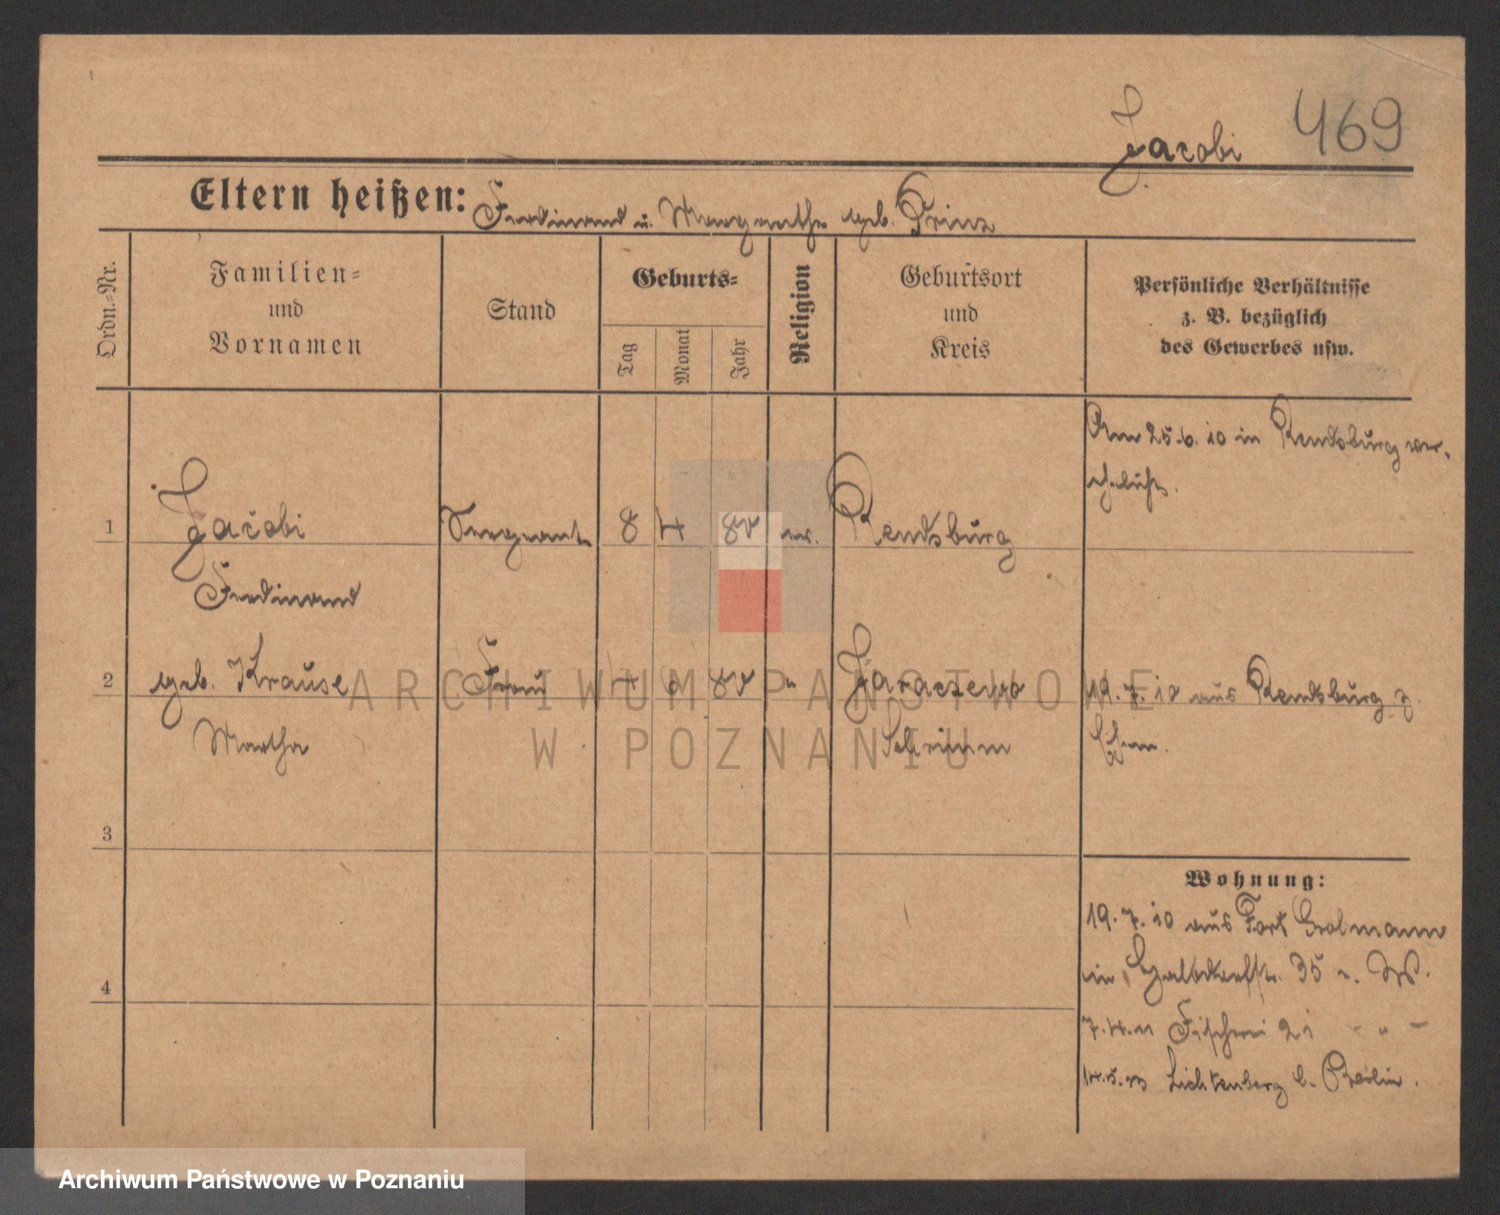 Jacobi 469
Eltern heißen: Ferdinand u. Margarethe geb. Prinz
Ordn.-Nr.
Familien-
und
Vornamen
Stand
Geburts-
Tag
Monat
Jahr
Religion
Geburtsort
und
Kreis
Persönliche Verhältnisse
z. B. bezüglich
des Gewerbes usw.
Am 25.6.10 in Rendsburg ver-
ehelicht.
1 Jacobi Sergeant 8 4 ev. Rendsburg
Ferdinand
2 geb. Krause Frau 6 " Jaraczewo 19.7.10 aus Rendsburg z.
Martha Schrimm
ARCHIWUM PAŃSTWOWE
W POZNANIU
3
4
Wohnung:
19.7.10 aus Fort Grolmann
in 35
7.4.11 Fischerei 21 - " -
Lichtenberg b. Berlin.
Archiwum Państwowe w Poznaniu